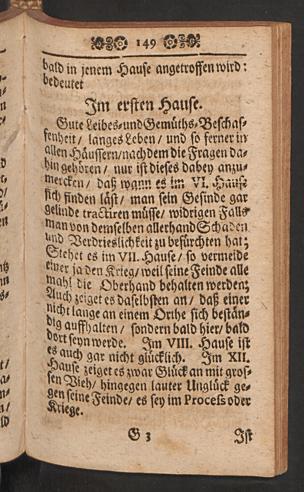 149
bald in jenem Hause angetroffen wird:
bedeutet
Im ersten Hause.
Gute Leibes- und Gemüths-Beschaf-
fenheit / langes Leben / und so ferner in
allen Häussern / nachdem die Fragen da-
hin gehören / nur ist dieses dabey anzu-
mercken / daß wann es im VI. Hause
sich finden läst / man sein Gesinde gar
gelinde tractiren müsse / widrigen Falls
man von demselben allerhand Schaden
und Verdrieslichkeit zu befürchten hat;
Stehet es im VII. Hause / so vermeide
einer ja den Krieg / weil seine Feinde alle
mahl die Oberhand behalten werden;
Auch zeiget es daselbsten an / daß einer
nicht lange an einem Orthe sich bestän-
dig auffhalten / sondern bald hier / bald
dort seyn werde. Im VIII. Hause ist
es auch gar nicht glücklich. Im XII.
Hause zeiget es zwar Glück an mit gros-
sen Vieh / hingegen lauter Unglück ge-
gen seine Feinde / es sey im Process oder
Kriege.
G 3 Ist